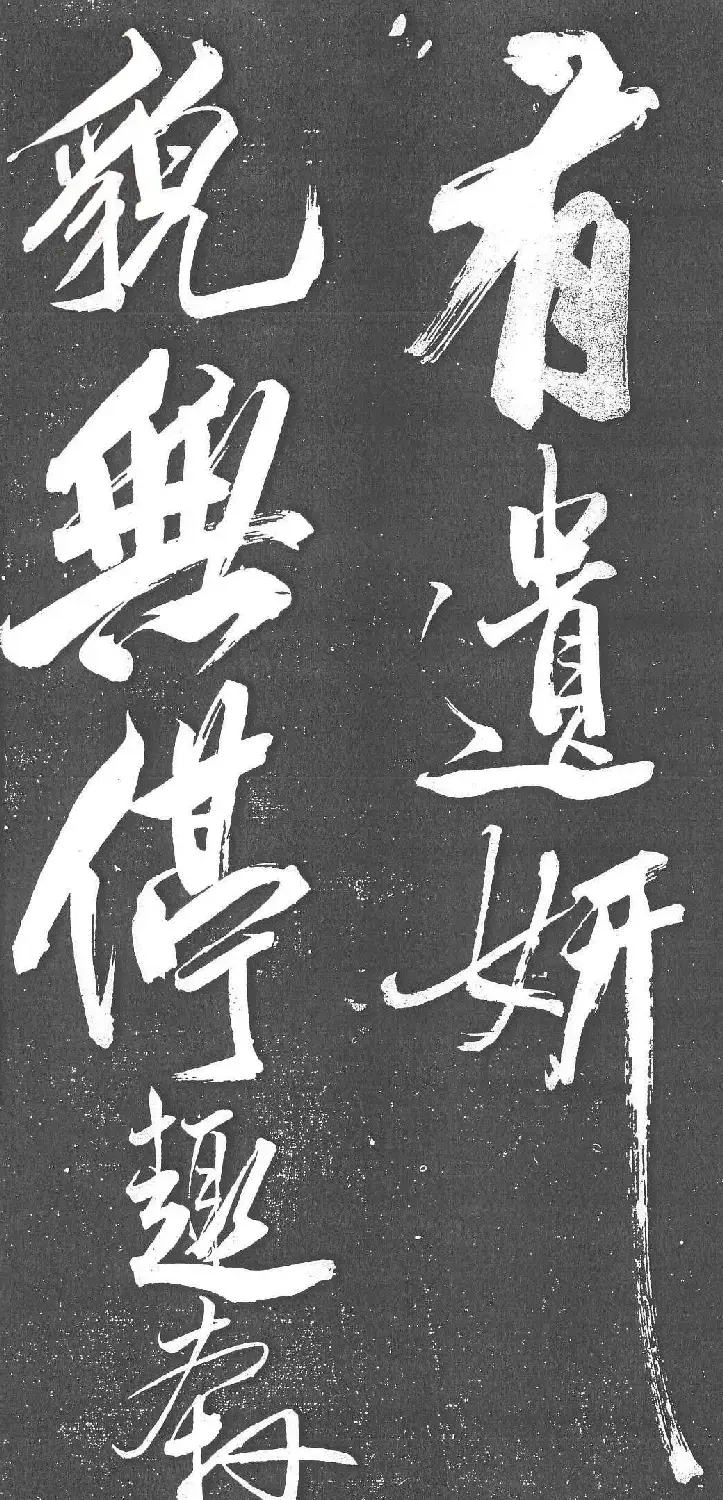 有遺妍
貌無停趣奔